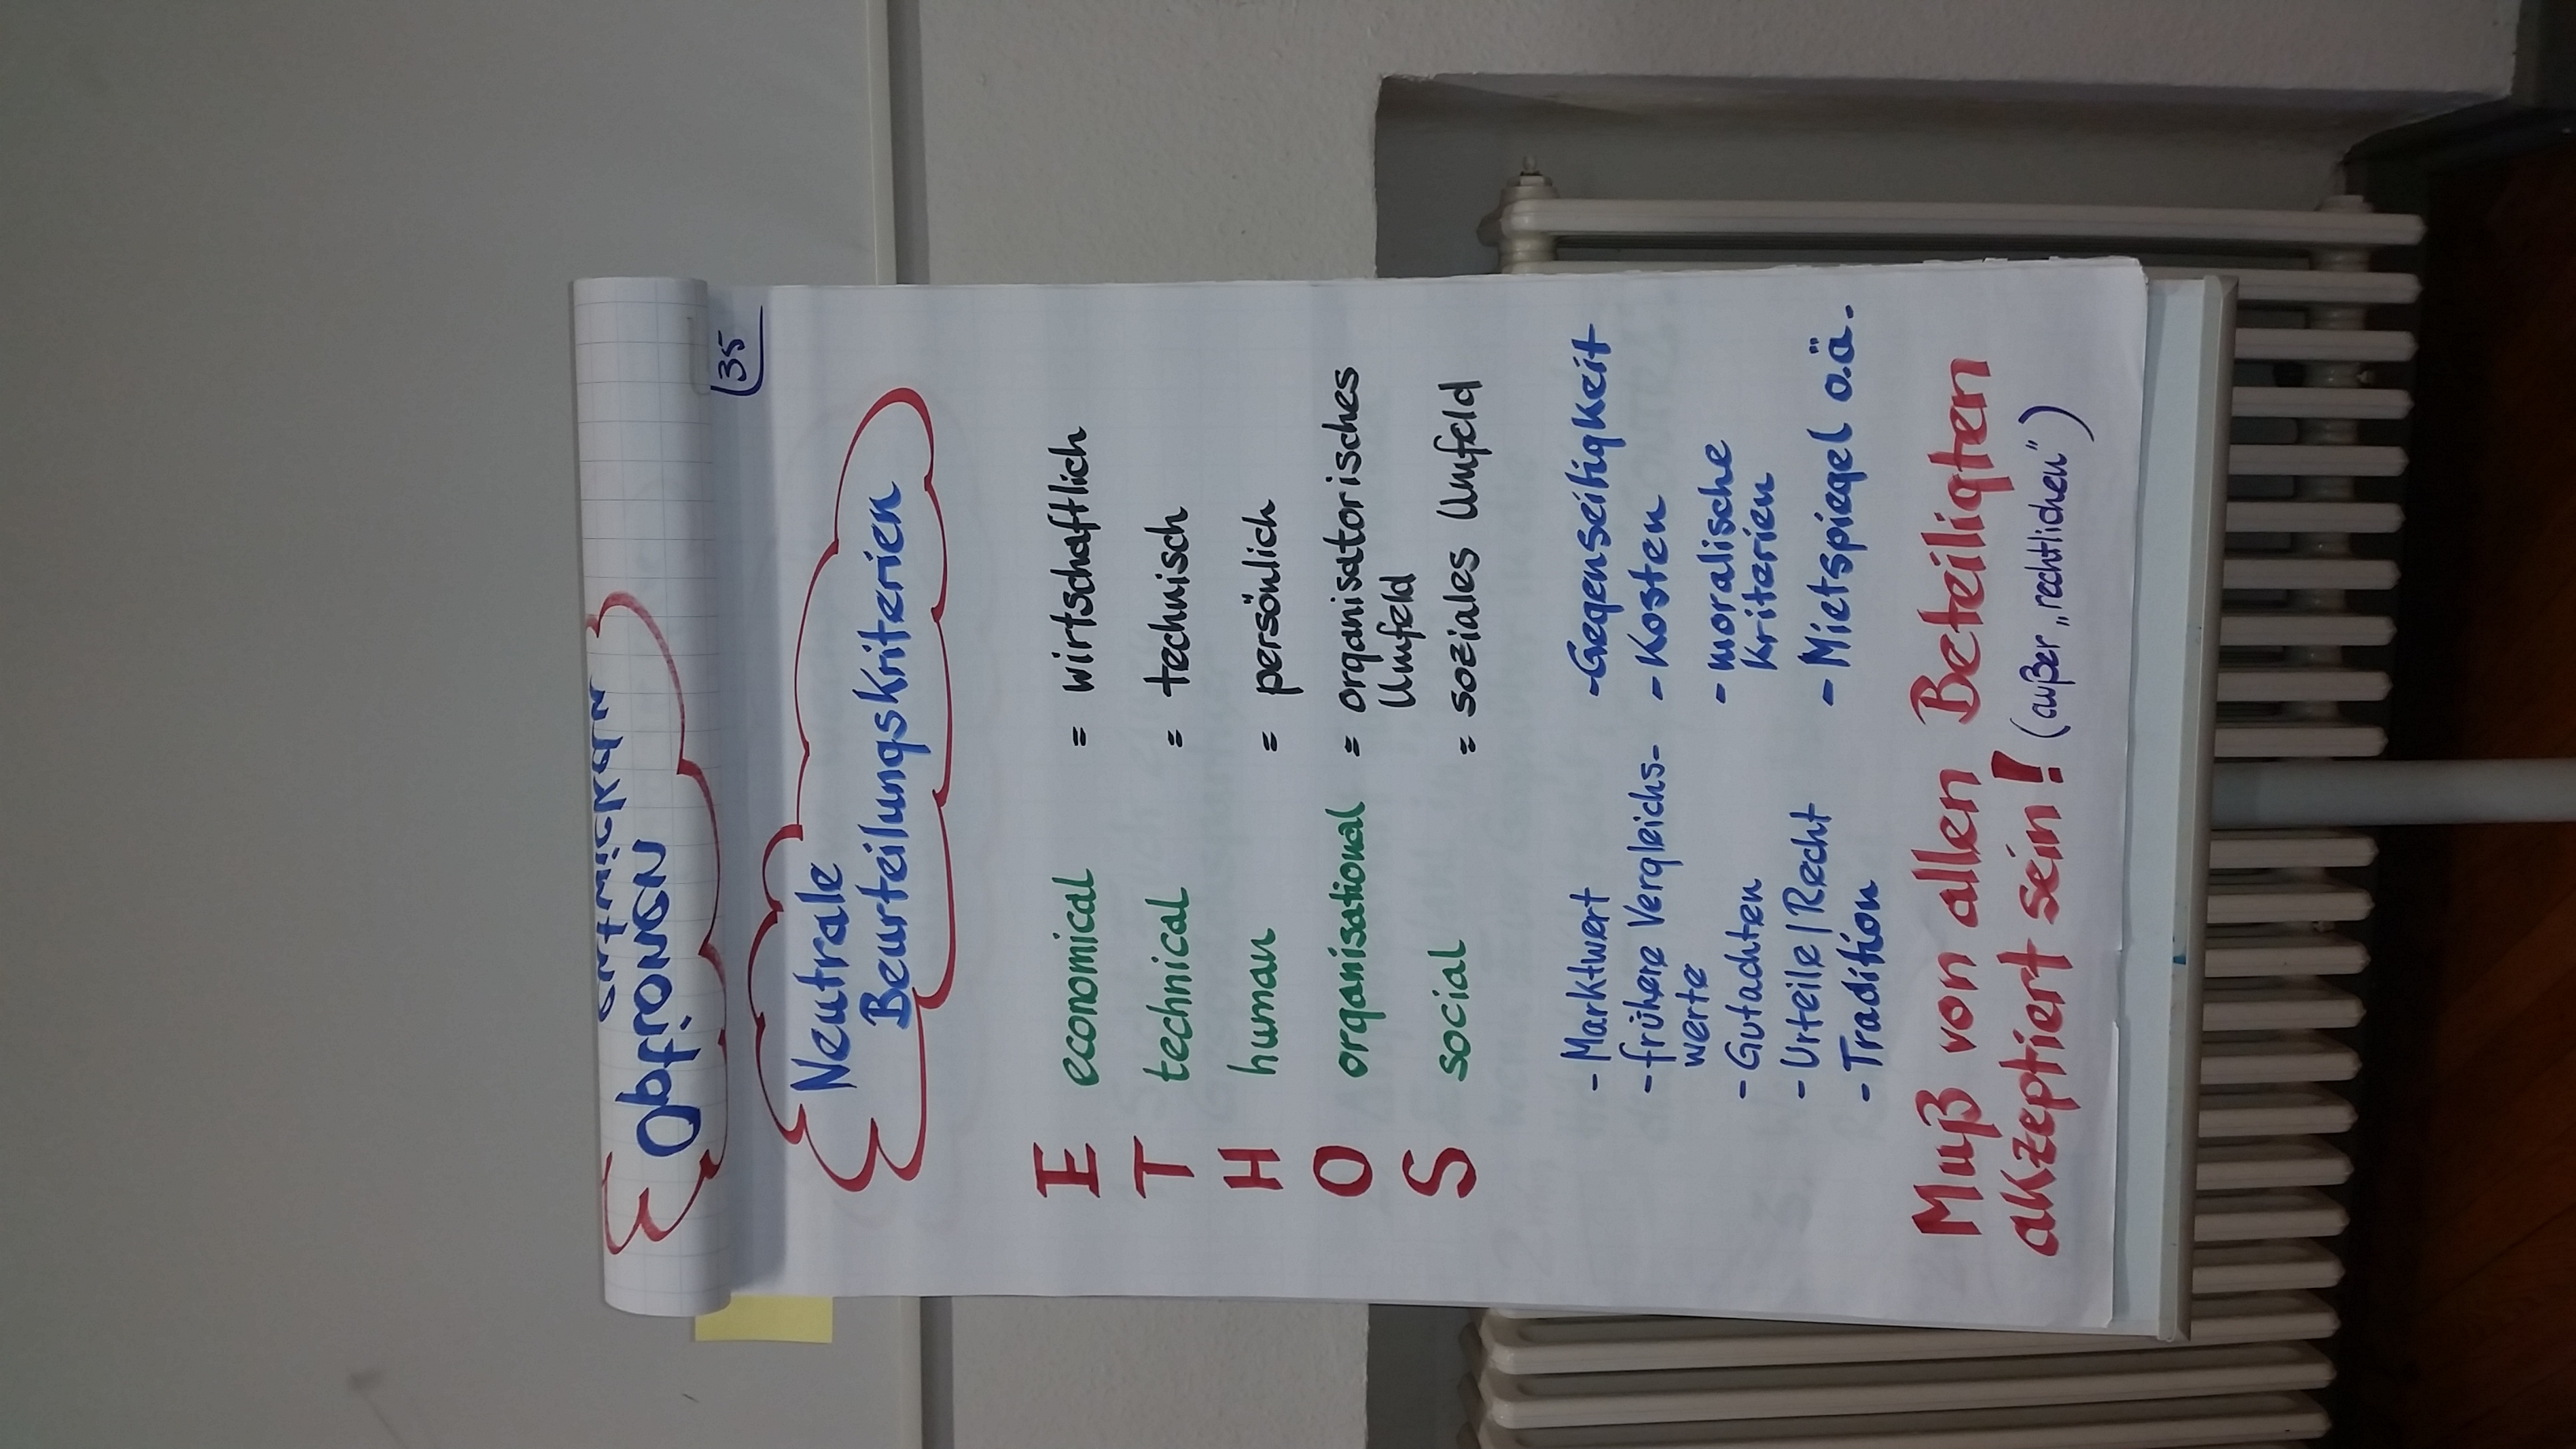 entwickeln
Optionen
35
Neutrale
Beurteilungskriterien
E economical = wirtschaftlich
T technical = technisch
H human = persönlich
O organisational = organisatorisches
Umfeld
S social = soziales Umfeld
- Marktwert
- frühere Vergleichs-
werte
- Gutachten
- Urteile/Recht
- Tradition
- Gegenseitigkeit
- Kosten
- moralische
Kriterien
- Mietspiegel o.ä.
Muß von allen Beteiligten
akzeptiert sein! (außer „rechtlichen“)